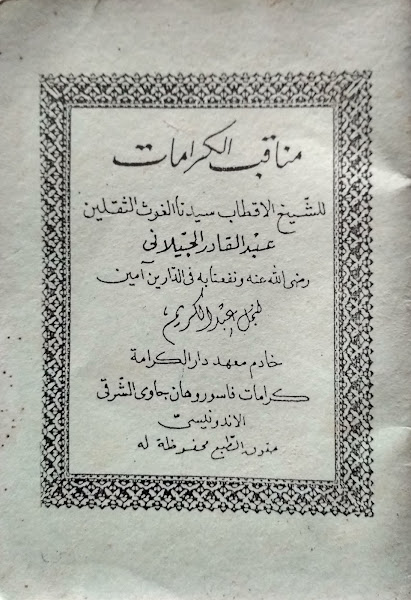 مناقب الكرامات
للشّيخ الاقطاب سيدنا الغوث الثقلين
عبد القادر الجيلانى
رضى الله عنه ونفعنا به فى الدّارين آمين
لنجل عبد الكريم
خادم معهد دار الكرامة
كرامات فاسوروهان جاوى الشّرقى
الاندونيسىّ
حقوق الطّبع محفوظة له